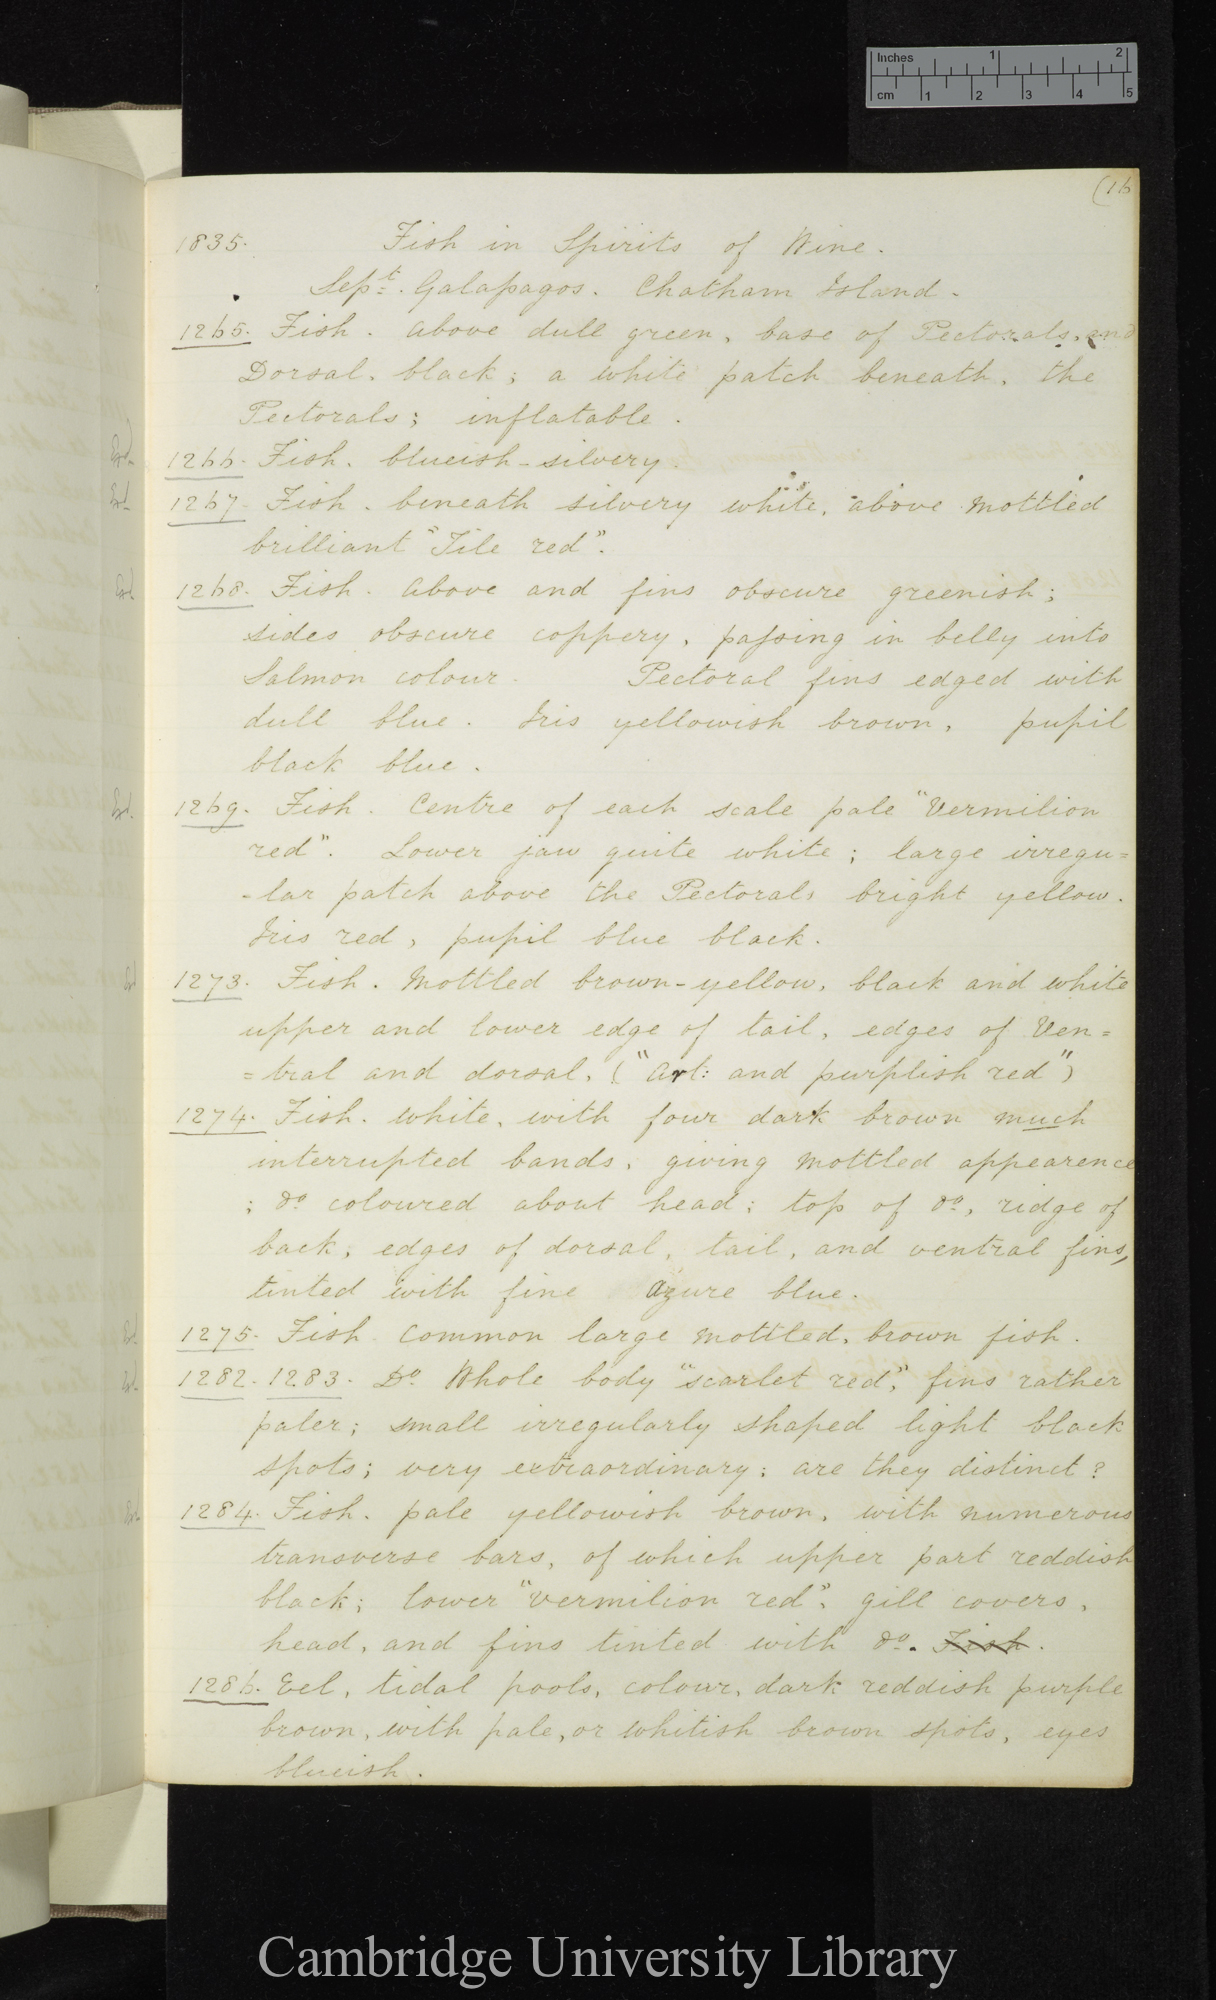 Inches 1 2
cm 1 2 3 4 5
(16
1835. Fish in Spirits of Wine.
Sept. Galapagos. Chatham Island.
1265. Fish. above dull green, base of Pectorals, and
Dorsal, black; a white patch beneath, the
Pectorals; inflatable.
1266. Fish. blueish-silvery.
1267. Fish. beneath silvery white, above mottled
brilliant "Tile red".
1268. Fish. above and fins obscure greenish;
sides obscure coppery, passing in belly into
Salmon colour. Pectoral fins edged with
dull blue. Iris yellowish brown, pupil
black blue.
1269. Fish. Centre of each scale pale "Vermilion
red". Lower jaw quite white; large irregu=
-lar patch above the Pectorals bright yellow.
Iris red, pupil blue black.
1273. Fish. Mottled brown-yellow, black and white
upper and lower edge of tail, edges of Ven=
=tral and dorsal, ("Art: and purplish red")
1274. Fish. white, with four dark brown much
interrupted bands, giving mottled appearence
; do coloured about head; top of do, ridge of
back, edges of dorsal, tail, and ventral fins,
tinted with fine azure blue.
1275. Fish. Common large mottled, brown fish.
1282. 1283. Do Whole body "scarlet red", fins rather
paler; small irregularly shaped light black
spots; very extraordinary; are they distinct?
1284. Fish. pale yellowish brown, with numerous
transverse bars, of which upper part reddish
black; lower "vermilion red", gill covers,
head, and fins tinted with do. Fish.
1286. Eel, tidal pools, colour, dark reddish purple
brown, with pale, or whitish brown spots, eyes
blueish.
Cambridge University Library